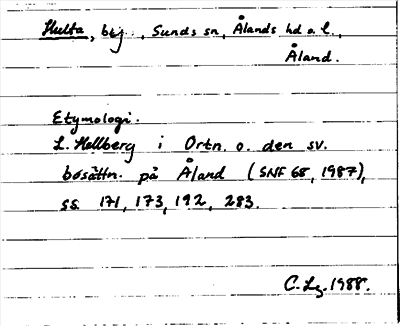 Hulta, by, Sunds sn, Ålands hd o. l.,
Åland.
Etymologi.
L. Hellberg i Ortn. o. den sv.
bosättn. på Åland (SNF 68, 1987),
ss. 171, 173, 192, 283.
C. Lg. 1988.